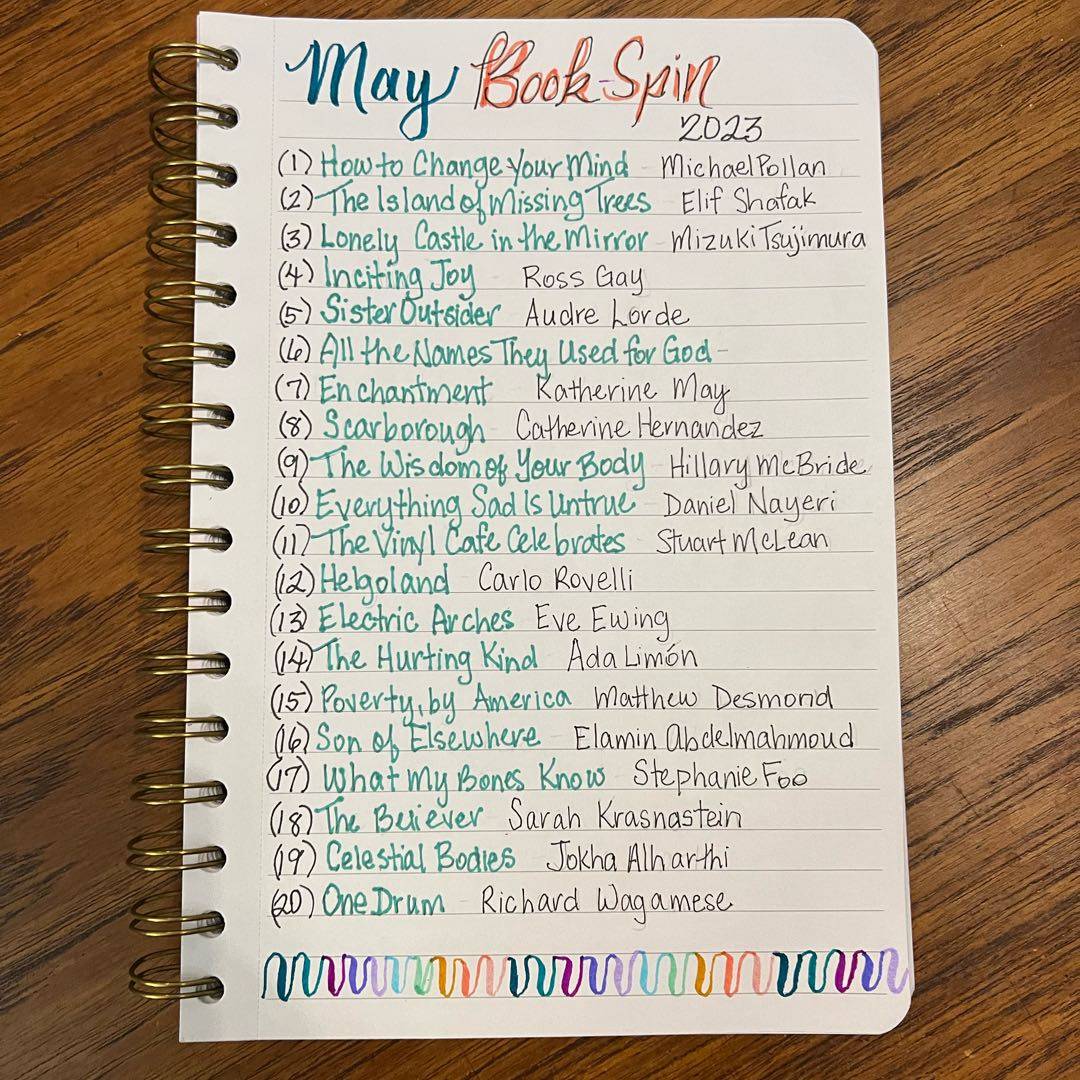 May Book-Spin
2023
(1) How to Change Your Mind - Michael Pollan
(2) The Island of Missing Trees Elif Shafak
(3) Lonely Castle in the Mirror - Mizuki Tsujimura
(4) Inciting Joy Ross Gay
(5) Sister Outsider Audre Lorde
(6) All the Names They Used for God -
(7) Enchantment Katherine May
(8) Scarborough - Catherine Hernandez
(9) The Wisdom of Your Body - Hillary McBride
(10) Everything Sad Is Untrue - Daniel Nayeri
(11) The Vinyl Cafe Celebrates - Stuart McLean
(12) Helgoland - Carlo Rovelli
(13) Electric Arches Eve Ewing
(14) The Hurting Kind Ada Limón
(15) Poverty, by America Matthew Desmond
(16) Son of Elsewhere - Elamin Abdelmahmoud
(17) What My Bones Know - Stephanie Foo
(18) The Believer - Sarah Krasnastein
(19) Celestial Bodies Jokha Alharthi
(20) One Drum - Richard Wagamese